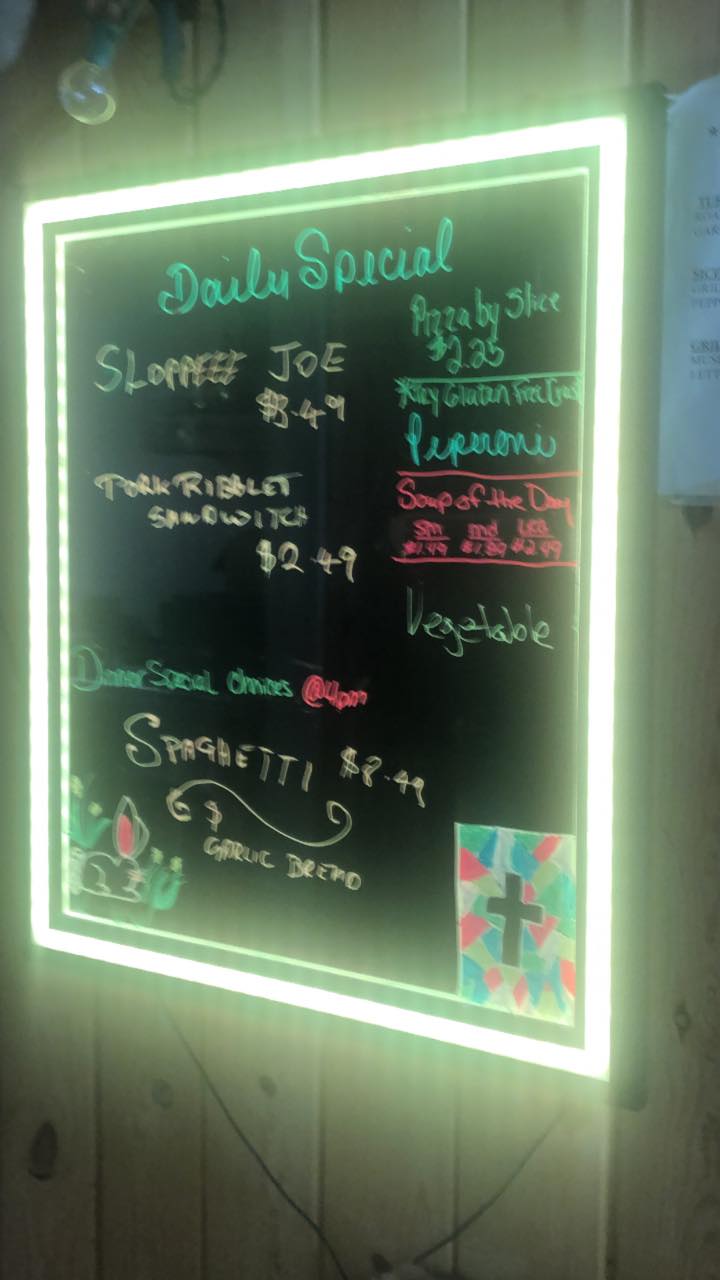 Daily Special
SLOPPEEE JOE
$3.49
PORK RIBBLET
SANDWITCH
$2.49
Dinner Special Choices @4pm
SPAGHETTI $8.49
GARLIC BREAD
Pizza by Slice
$2.25
Gluten Free Crust
Peperoni
Soup of the Day
SM md LRG
$1.49 $1.89 $2.49
Vegetable